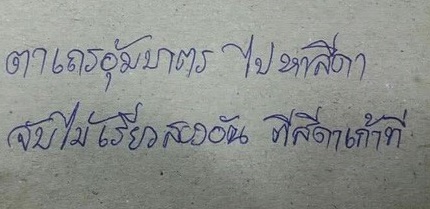 ตาเถรอุ้มบาตร ไปหาสีดา
จับไม้เรียวสองอัน ตีสีดาเก้าที